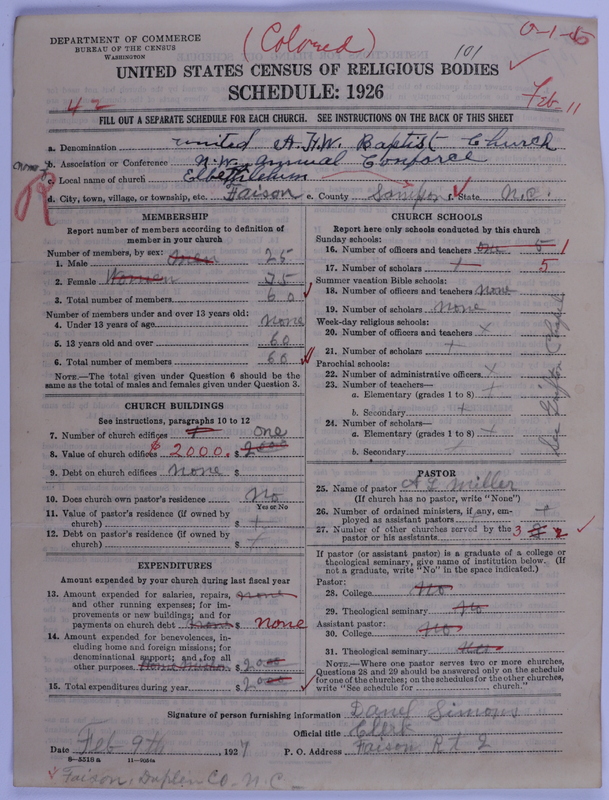 DEPARTMENT OF COMMERCE
BUREAU OF THE CENSUS
WASHINGTON
(Colored)
101
0-1-
UNITED STATES CENSUS OF RELIGIOUS BODIES
SCHEDULE: 1926
42
Feb 11
FILL OUT A SEPARATE SCHEDULE FOR EACH CHURCH. SEE INSTRUCTIONS ON THE BACK OF THIS SHEET
a. Denomination United A.F.W. Baptist Church
b. Association or Conference N.W. Annual
c. Local name of church
d. City, town, village, or township, etc. Faison e. County Sampson f. State N.C.
MEMBERSHIP
Report number of members according to definition of member in your church
Number of members, by sex:
1. Male 25
2. Female Women
3. Total number of members 60
Number of members under and over 13 years old:
4. Under 13 years of age none
5. 13 years old and over 60
6. Total number of members 60
NOTE.—The total given under Question 6 should be the same as the total of males and females given under Question 3.
CHURCH BUILDINGS
See instructions, paragraphs 10 to 12
7. Number of church edifices 1 one
8. Value of church edifices $ 2000. $ 2000
9. Debt on church edifices none $
10. Does church own pastor's residence No
Yes or No
11. Value of pastor's residence (if owned by church) $ +
12. Debt on pastor's residence (if owned by church) $ +
EXPENDITURES
Amount expended by your church during last fiscal year
13. Amount expended for salaries, repairs, and other running expenses; for improvements or new buildings; and for payments on church debt none none
14. Amount expended for benevolences, including home and foreign missions; for denominational support; and for all other purposes Home Mission $ 2000
15. Total expenditures during year $ 2000
CHURCH SCHOOLS
Report here only schools conducted by this church
Sunday schools:
16. Number of officers and teachers One 5 1
17. Number of scholars + 5
Summer vacation Bible schools:
18. Number of officers and teachers None
19. Number of scholars None
Week-day religious schools:
20. Number of officers and teachers x
21. Number of scholars +
Parochial schools:
22. Number of administrative officers x
23. Number of teachers—
a. Elementary (grades 1 to 8) +
b. Secondary +
24. Number of scholars—
a. Elementary (grades 1 to 8) +
b. Secondary
See Griffin Chapel
PASTOR
25. Name of pastor A L Miller
(If church has no pastor, write "None")
26. Number of ordained ministers, if any, employed as assistant pastors +
27. Number of other churches served by the pastor or his assistants 3 2
If pastor (or assistant pastor) is a graduate of a college or theological seminary, give name of institution below. (If not a graduate, write "No" in the space indicated.)
Pastor:
28. College No
29. Theological seminary No
Assistant pastor:
30. College No
31. Theological seminary No
NOTE.—Where one pastor serves two or more churches, Questions 28 and 29 should be answered only on the schedule for one of the churches; on the schedules for the other churches, write "See schedule for church."
Signature of person furnishing information Simons
Official title Clerk
Date Feb 9th, 1927 P. O. Address Faison R t 2
8—5518 a 11—8054a
Faison, Duplin Co - N.C -